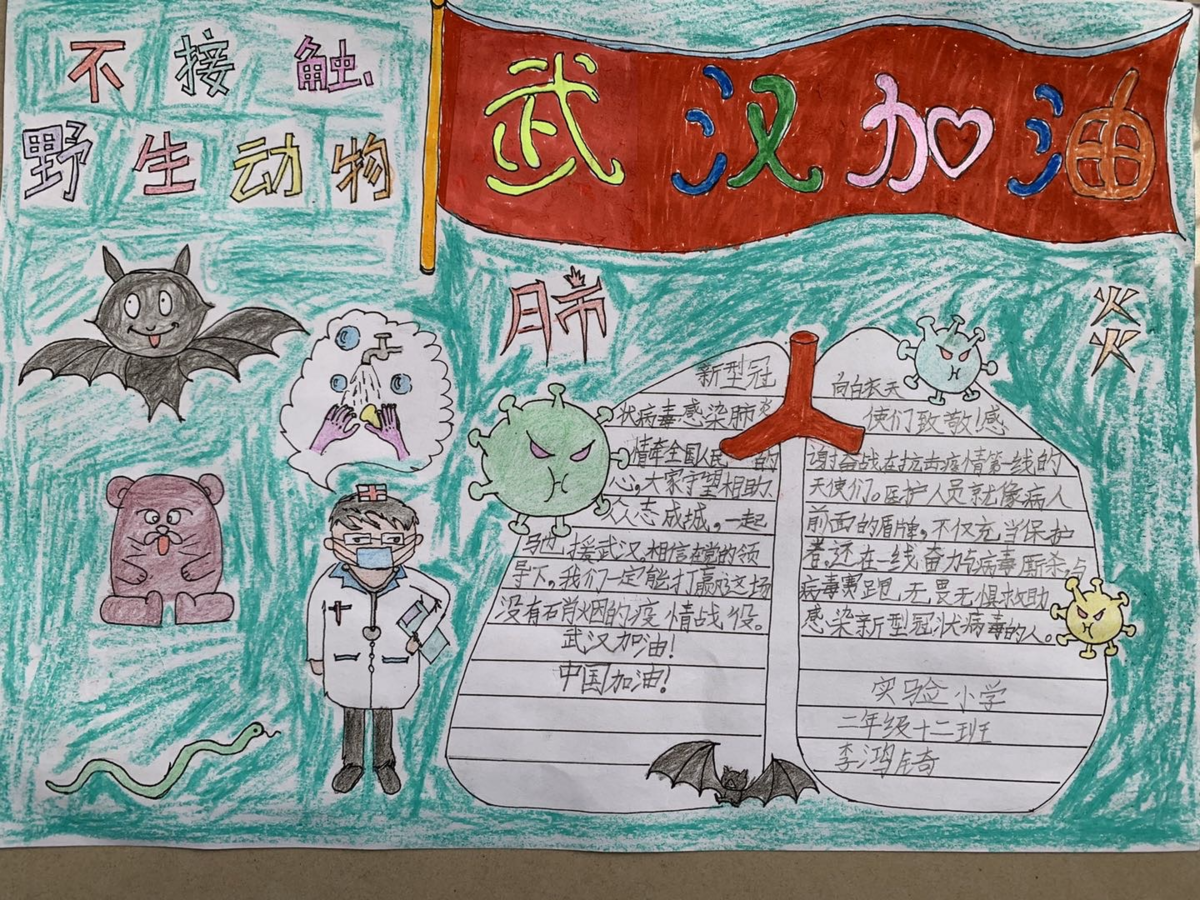 不接触
野生动物
武汉加油
肺
炎
新型冠
状病毒感染肺炎
情牵全国人民的
心,大家守望相助
众志成城,一起
驰援武汉,相信在党的领
导下,我们一定能打赢这场
没有硝烟的疫情战役。
武汉加油!
中国加油!
向白衣天
使们致敬!感
谢奋战在抗击疫情第一线的
天使们。医护人员就像病人
前面的盾牌,不仅充当保护
者,还在一线奋力与病毒厮杀与
病毒赛跑,无畏无惧救助
感染新型冠状病毒的人。
实验小学
二年级十二班
李鸿锜